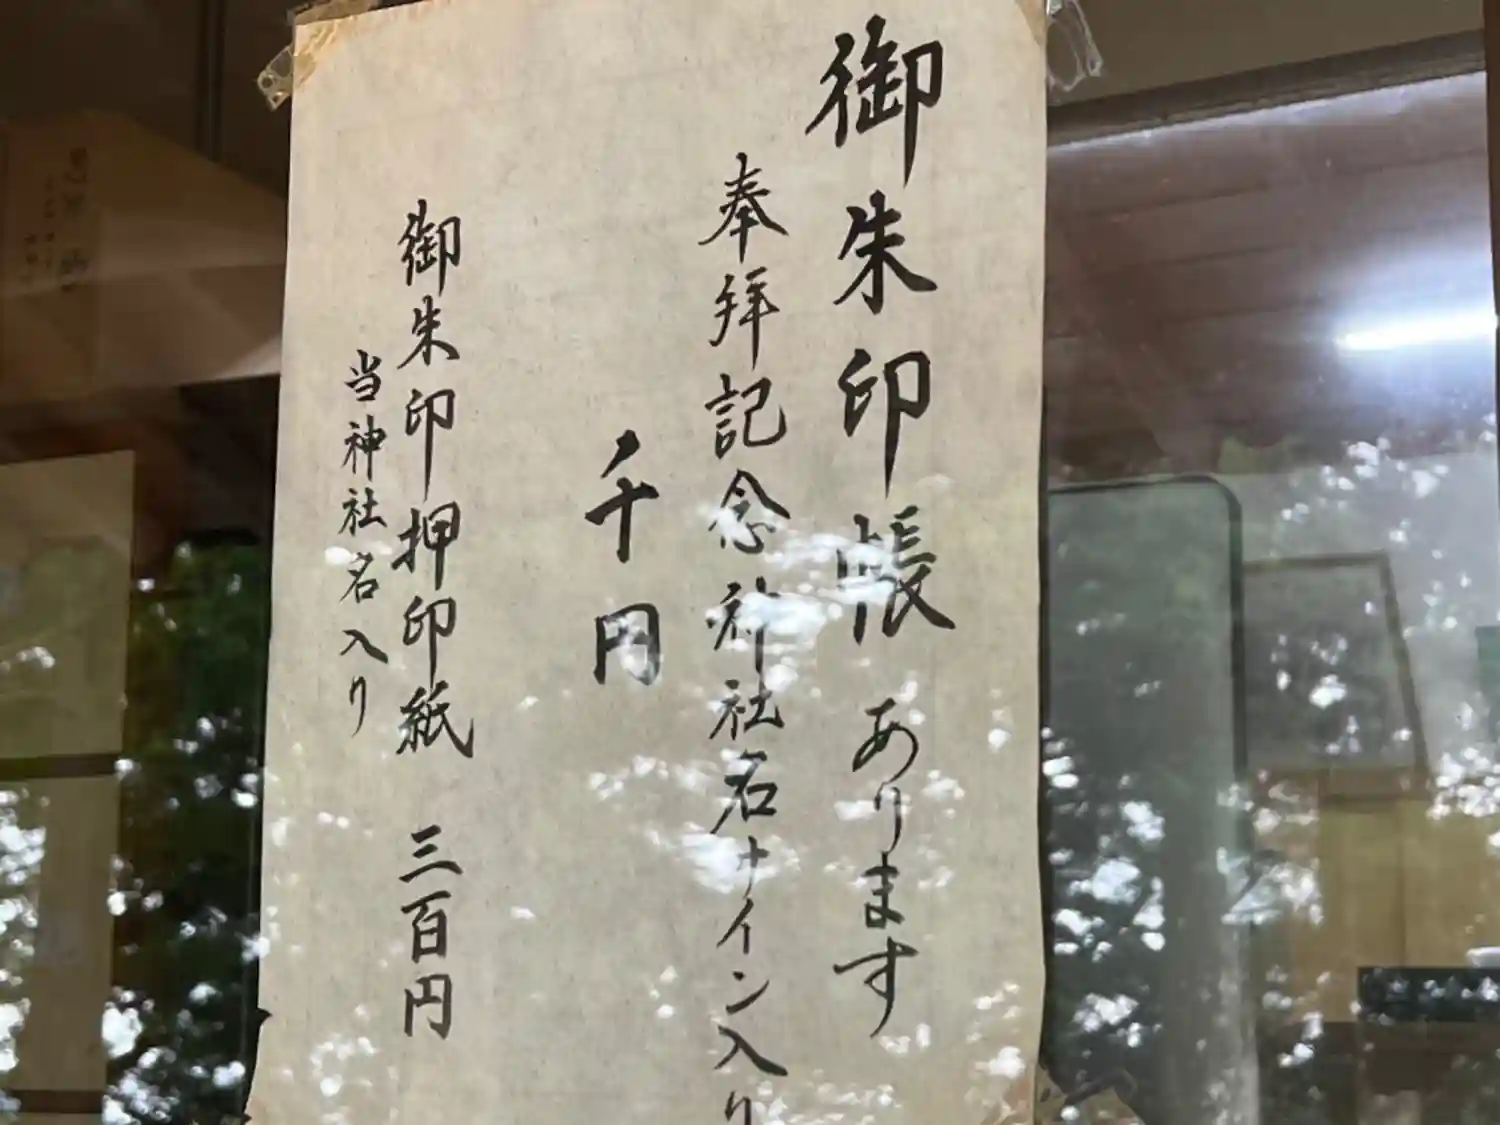 御朱印帳 あります
奉拝記念神社名サイン入り
千円
御朱印押印紙 三百円
当神社名入り